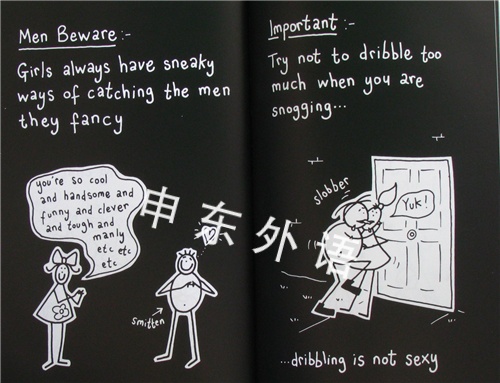 Men Beware :-
Girls always have sneaky
ways of catching the men
they fancy
you're so cool
and handsome and
funny and clever
and tough and
manly
etc etc
etc
smitten
Important :-
Try not to dribble too
much when you are
snogging...
slobber
Yuk!
...dribbling is not sexy
申东外语